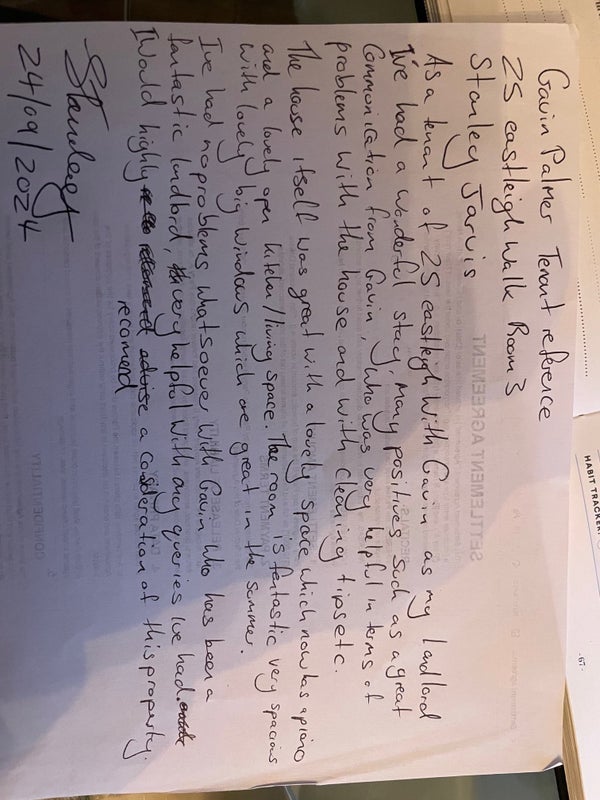 Gavin Palmer Tenant reference
25 eastleigh walk Room 3
Stanley Jarvis
As a tenant of 25 eastleigh with Gavin as my landlord
I've had a wonderful stay, many positives such as a great
Communication from Gavin, who was very helpful in terms of
problems with the house and with cleaning tips etc.
The house itself was great with a lovely space which now has a piano
and a lovely open kitchen/living space. The room is fantastic very spacious
with lovely big windows which are great in the summer.
I've had no problems whatsoever with Gavin who has been a
fantastic landlord, very helpful with any queries ive had.
I Would highly recomend a consideration of this property.
Stanley
24/09/2024
SETTLEMENT AGREEMENT
CONFIDENTIALITY
HABIT TRACKER